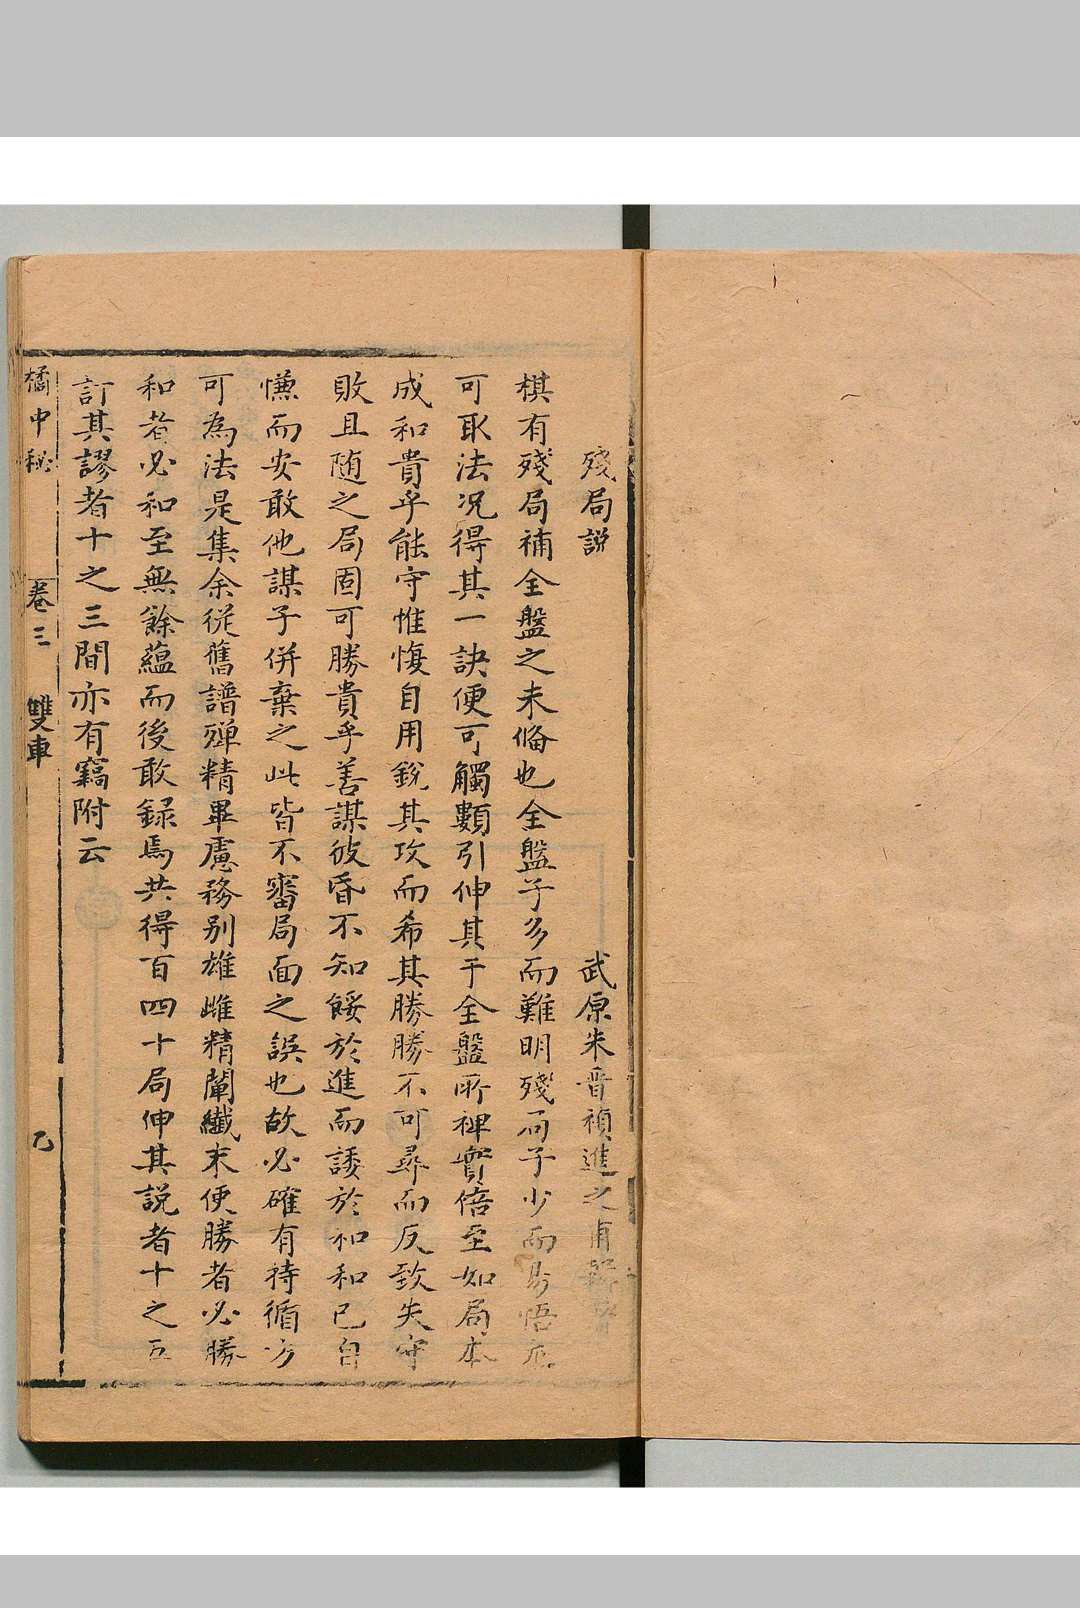 殘局說
武原朱晋禎進之甫
棋有殘局補全盤之未俻也全盤子多而難明殘局子少而易悟尤
可取法况得其一訣便可觸類引伸其于全盤所裨實倍至如局本
成和貴乎能守惟愎自用銳其攻而希其勝勝不可尋而反致失守
敗且随之局固可勝貴乎善謀彼昏不知餒於進而諉於和和已自
慊而安敢他謀子併棄之此皆不審局面之誤也故必確有待循方
可為法是集余從舊譜殫精畢慮務别雄雌精闡纖末便勝者必勝
和者必和至無餘蘊而後敢録焉共得百四十局伸其説者十之五
訂其謬者十之三間亦有竊附云
橘中秘 卷三 雙車